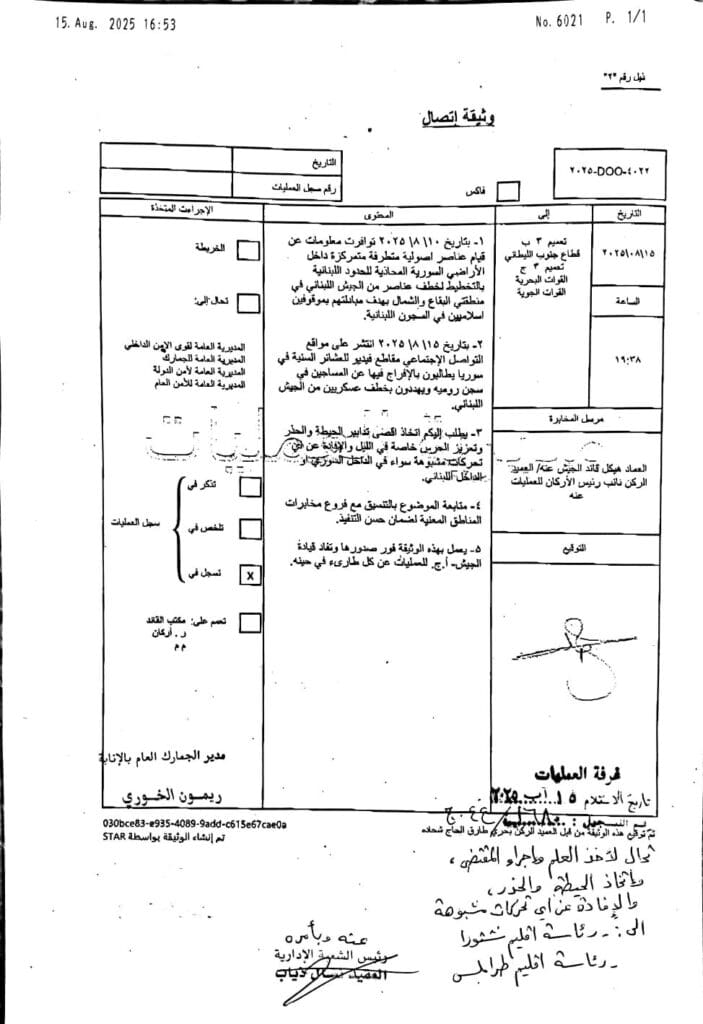 15. Aug. 2025 16:53
No. 6021 P. 1/1
ذيل رقم "٢"
وثيقة إتصال
٢٠٢٥-DOO-٤٠٢٢
فاكس
التاريخ
رقم سجل العمليات
التاريخ
إلى
المحتوى
الإجراءات المتخذة
٢٠٢٥/٠٨/١٥
الساعة
١٩:٣٨
تعميم ٣ ب
قطاع جنوب الليطاني
تعميم ٣ ج
القوات البحرية
القوات الجوية
مرسل المخابرة
العماد هيكل قائد الجيش عنه/ العميد
الركن نائب رئيس الأركان للعمليات
عنه
التوقيع
١- بتاريخ ١٠\ ٨\ ٢٠٢٥ توافرت معلومات عن
قيام عناصر اصولية متطرفة متمركزة داخل
الأراضي السورية المحاذية للحدود اللبنانية
بالتخطيط لخطف عناصر من الجيش اللبناني في
منطقتي البقاع والشمال بهدف مبادلتهم بموقوفين
اسلاميين في السجون اللبنانية.
٢- بتاريخ ١٥\ ٨\ ٢٠٢٥ انتشر على مواقع
التواصل الإجتماعي مقاطع فيديو للعشائر السنية في
سوريا يطالبون بالإفراج فيها عن المساجين في
سجن روميه ويهددون بخطف عسكريين من الجيش
اللبناني.
٣- يطلب إليكم اتخاذ اقصى تدابير الحيطة والحذر
وتعزيز الحرس خاصة في الليل والإفادة عن اي
تحركات مشبوهة سواء في الداخل السوري او
الداخل اللبناني.
٤- متابعة الموضوع بالتنسيق مع فروع مخابرات
المناطق المعنية لضمان حسن التنفيذ.
٥- يعمل بهذه الوثيقة فور صدورها وتفاد قيادة
الجيش- أ.ج. للعمليات عن كل طارىء في حينه.
الخريطة
تحال إلى:
المديرية العامة لقوى الامن الداخلي
المديرية العامة للجمارك
المديرية العامة لأمن الدولة
المديرية العامة للأمن العام
تذكر في
تلخص في
سجل العمليات
X تسجل في
تعمم على: مكتب القائد
ر. أركان
م م
مدير الجمارك العام بالإنابة
ريمون الخوري
030bce83-e935-4089-9add-c615e67cae0a
تم إنشاء الوثيقة بواسطة STAR
غرفة العمليات
تاريخ الاستلام ١٥ آب ٢٠٢٥
تم توقيع هذه الوثيقة من قبل العميد الركن بحري طارق الحاج شحاده
تحال لأخذ العلم واجراء المقتضى،
واتخاذ الحيطة والحذر،
والإفادة عن اي تحركات مشبوهة
الى: - رئاسة اقليم شتورا
- رئاسة اقليم طرابلس
عنه وبأمره
رئيس الشعبة الإدارية